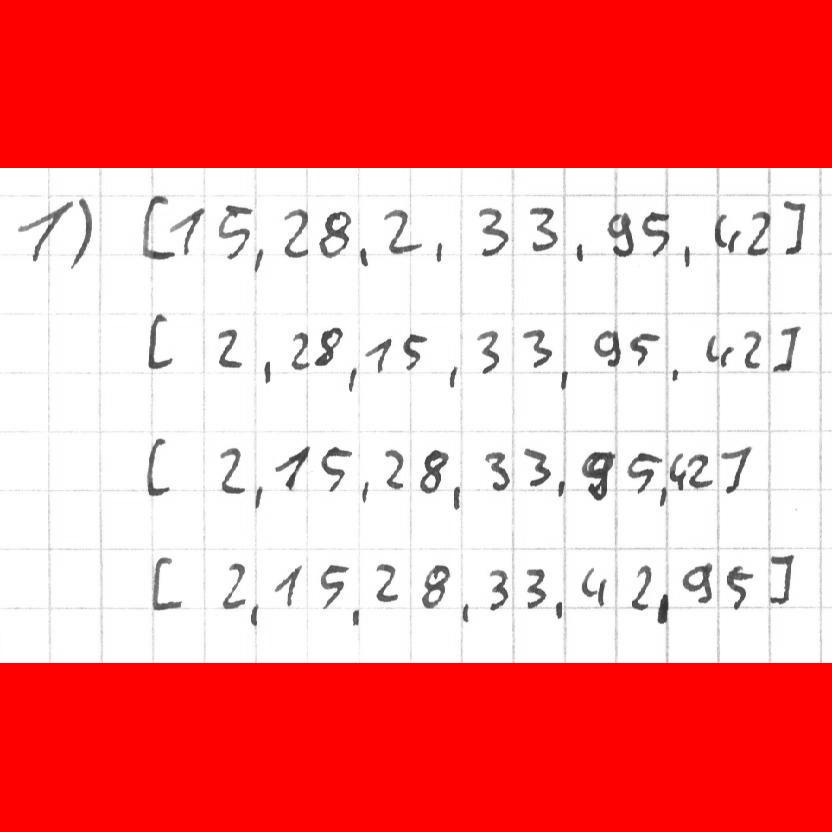 1) [15, 28, 2, 33, 95, 42]
[ 2, 28, 15, 33, 95, 42]
[ 2, 15, 28, 33, 95, 42]
[ 2, 15, 28, 33, 42, 95]